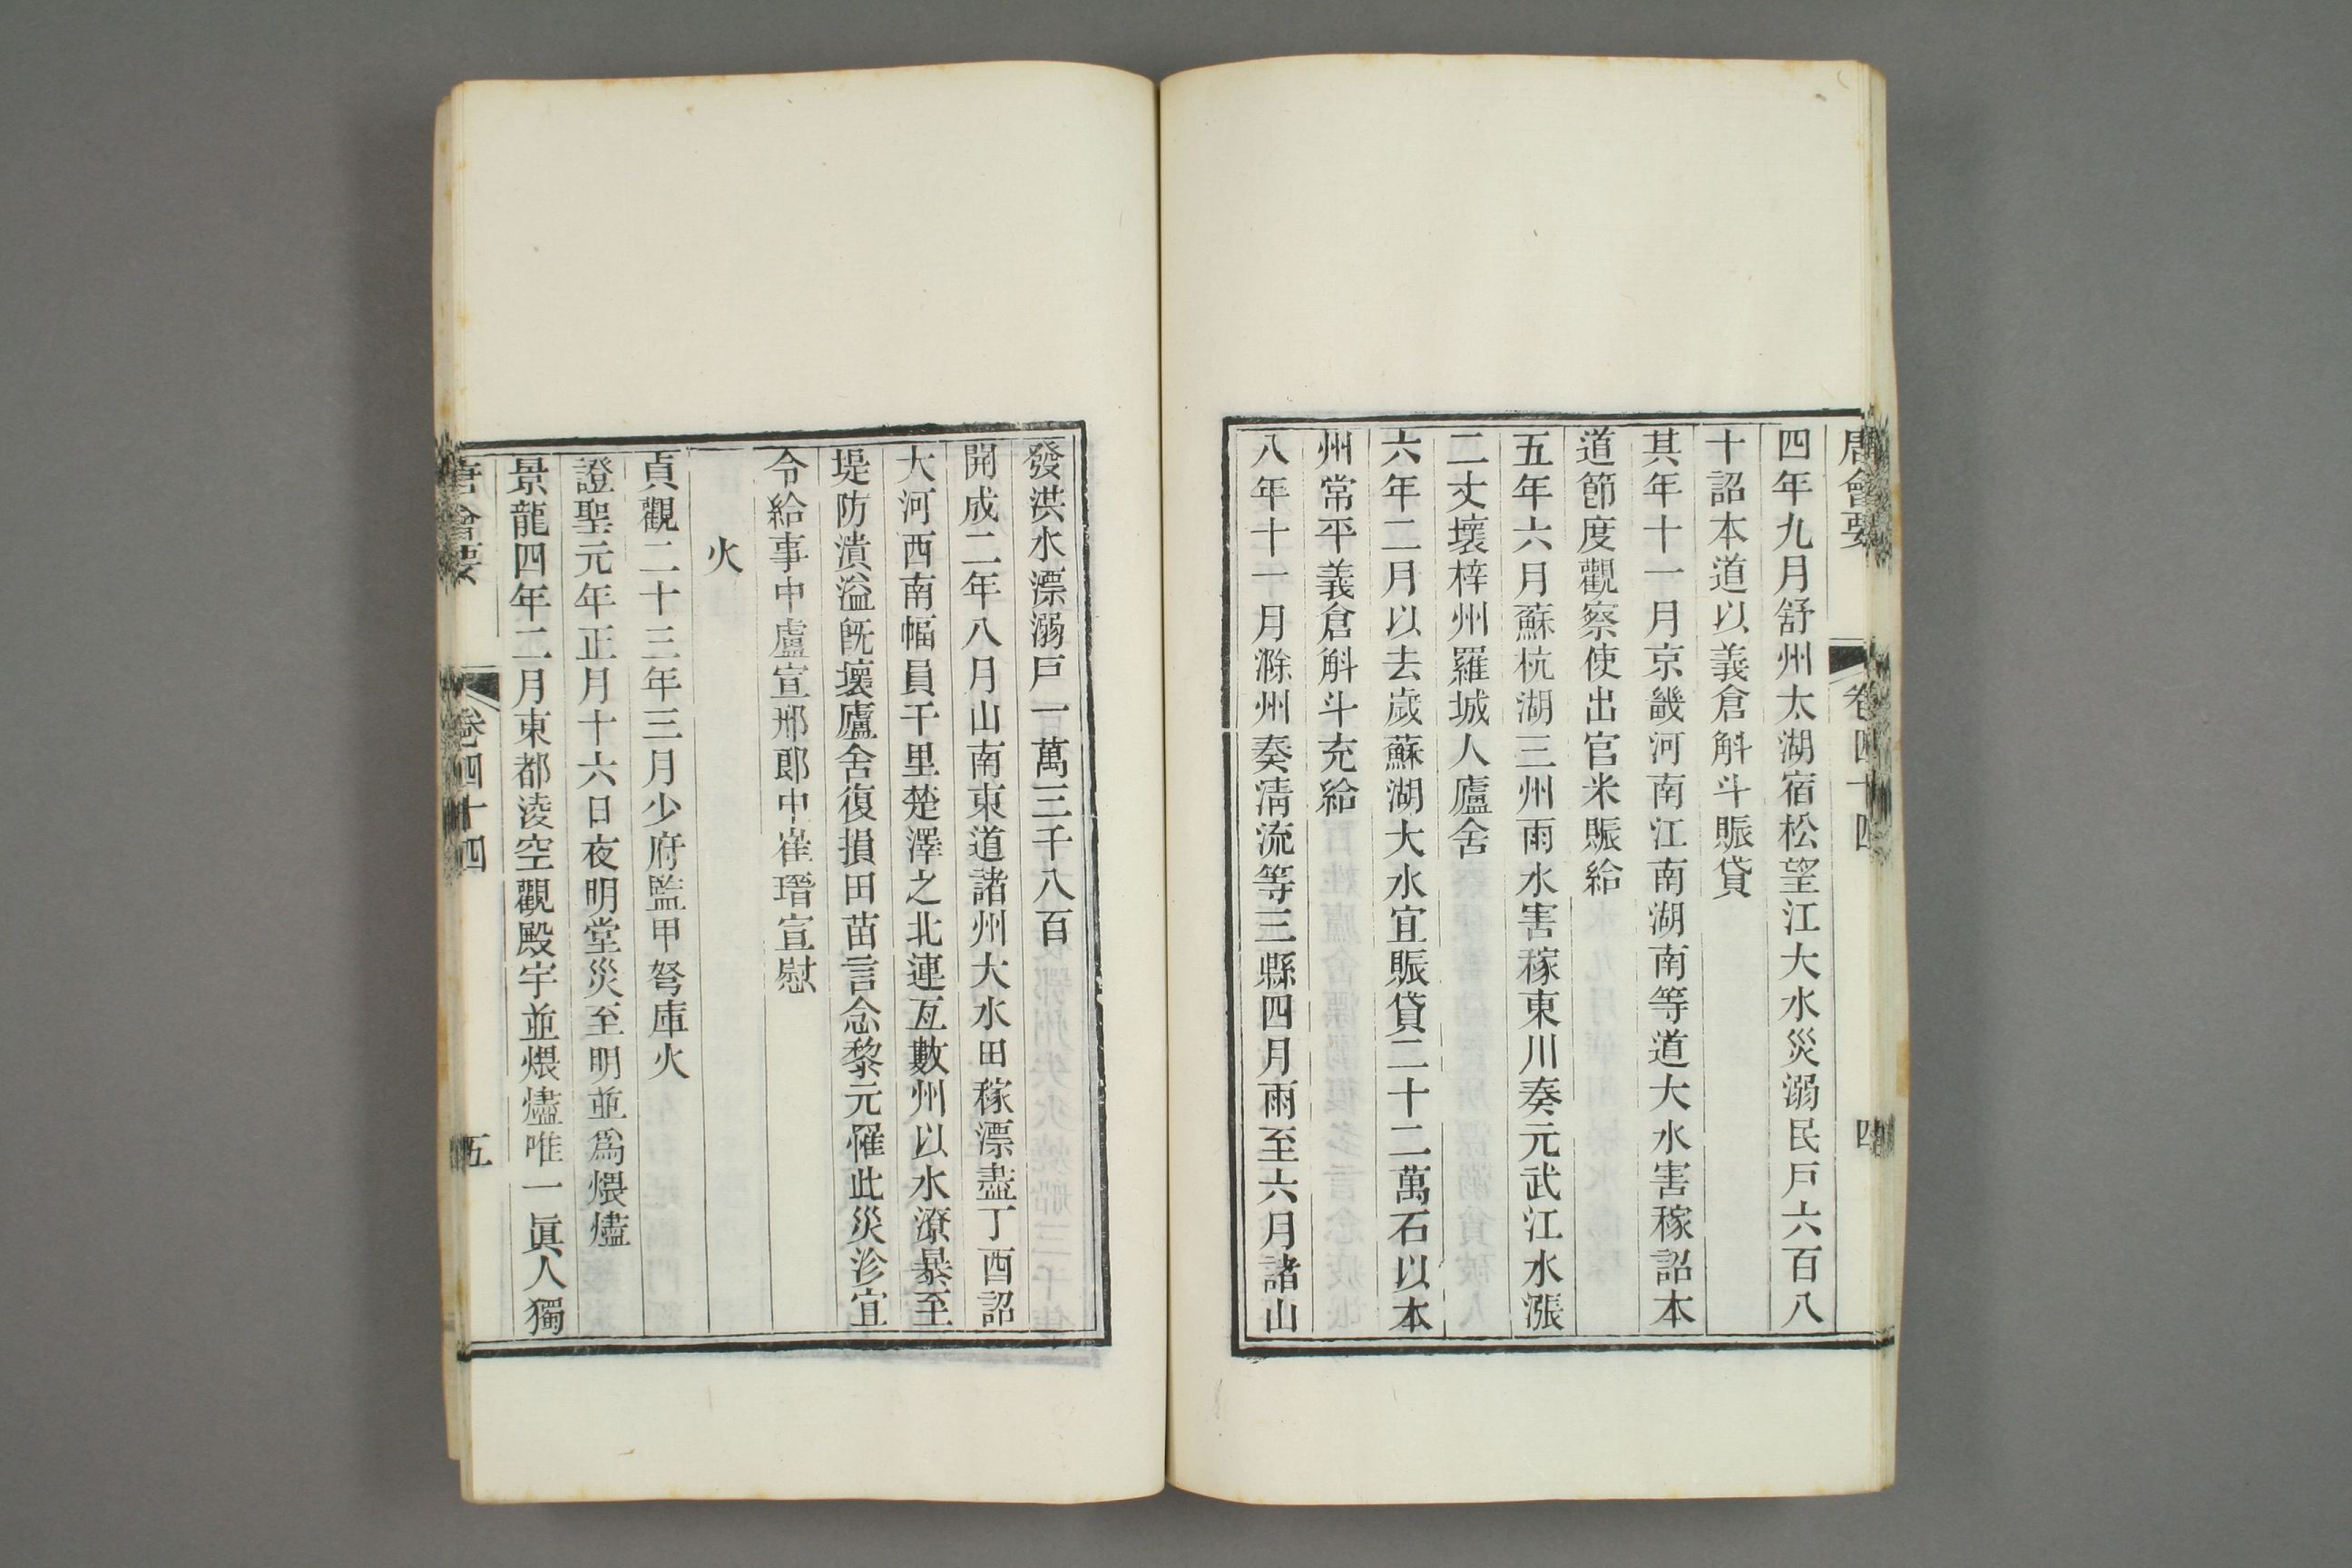 唐會要 卷四十四 四
四年九月舒州太湖宿松望江大水災溺民戶六百八
十詔本道以義倉斛斗賑貸
其年十一月京畿河南江南湖南等道大水害稼詔本
道節度觀察使出官米賑給
五年六月蘇杭湖三州雨水害稼東川奏元武江水漲
二丈壞梓州羅城人廬舍
六年二月以去歲蘇湖大水宜賑貸二十二萬石以本
州常平義倉斛斗充給
八年十一月滁州奏清流等三縣四月雨至六月諸山
發洪水漂溺戶一萬三千八百
開成二年八月山南東道諸州大水田稼漂盡丁酉詔
大河西南幅員千里楚澤之北連亙數州以水潦暴至
堤防潰溢旣壞廬舍復損田苗言念黎元罹此災沴宜
令給事中盧宣邢郎中崔瑨宣慰
火
貞觀二十三年三月少府監甲弩庫火
證聖元年正月十六日夜明堂災至明並爲煨燼
景龍四年二月東都淩空觀殿宇並煨燼唯一眞人獨
唐會要 卷四十四 五